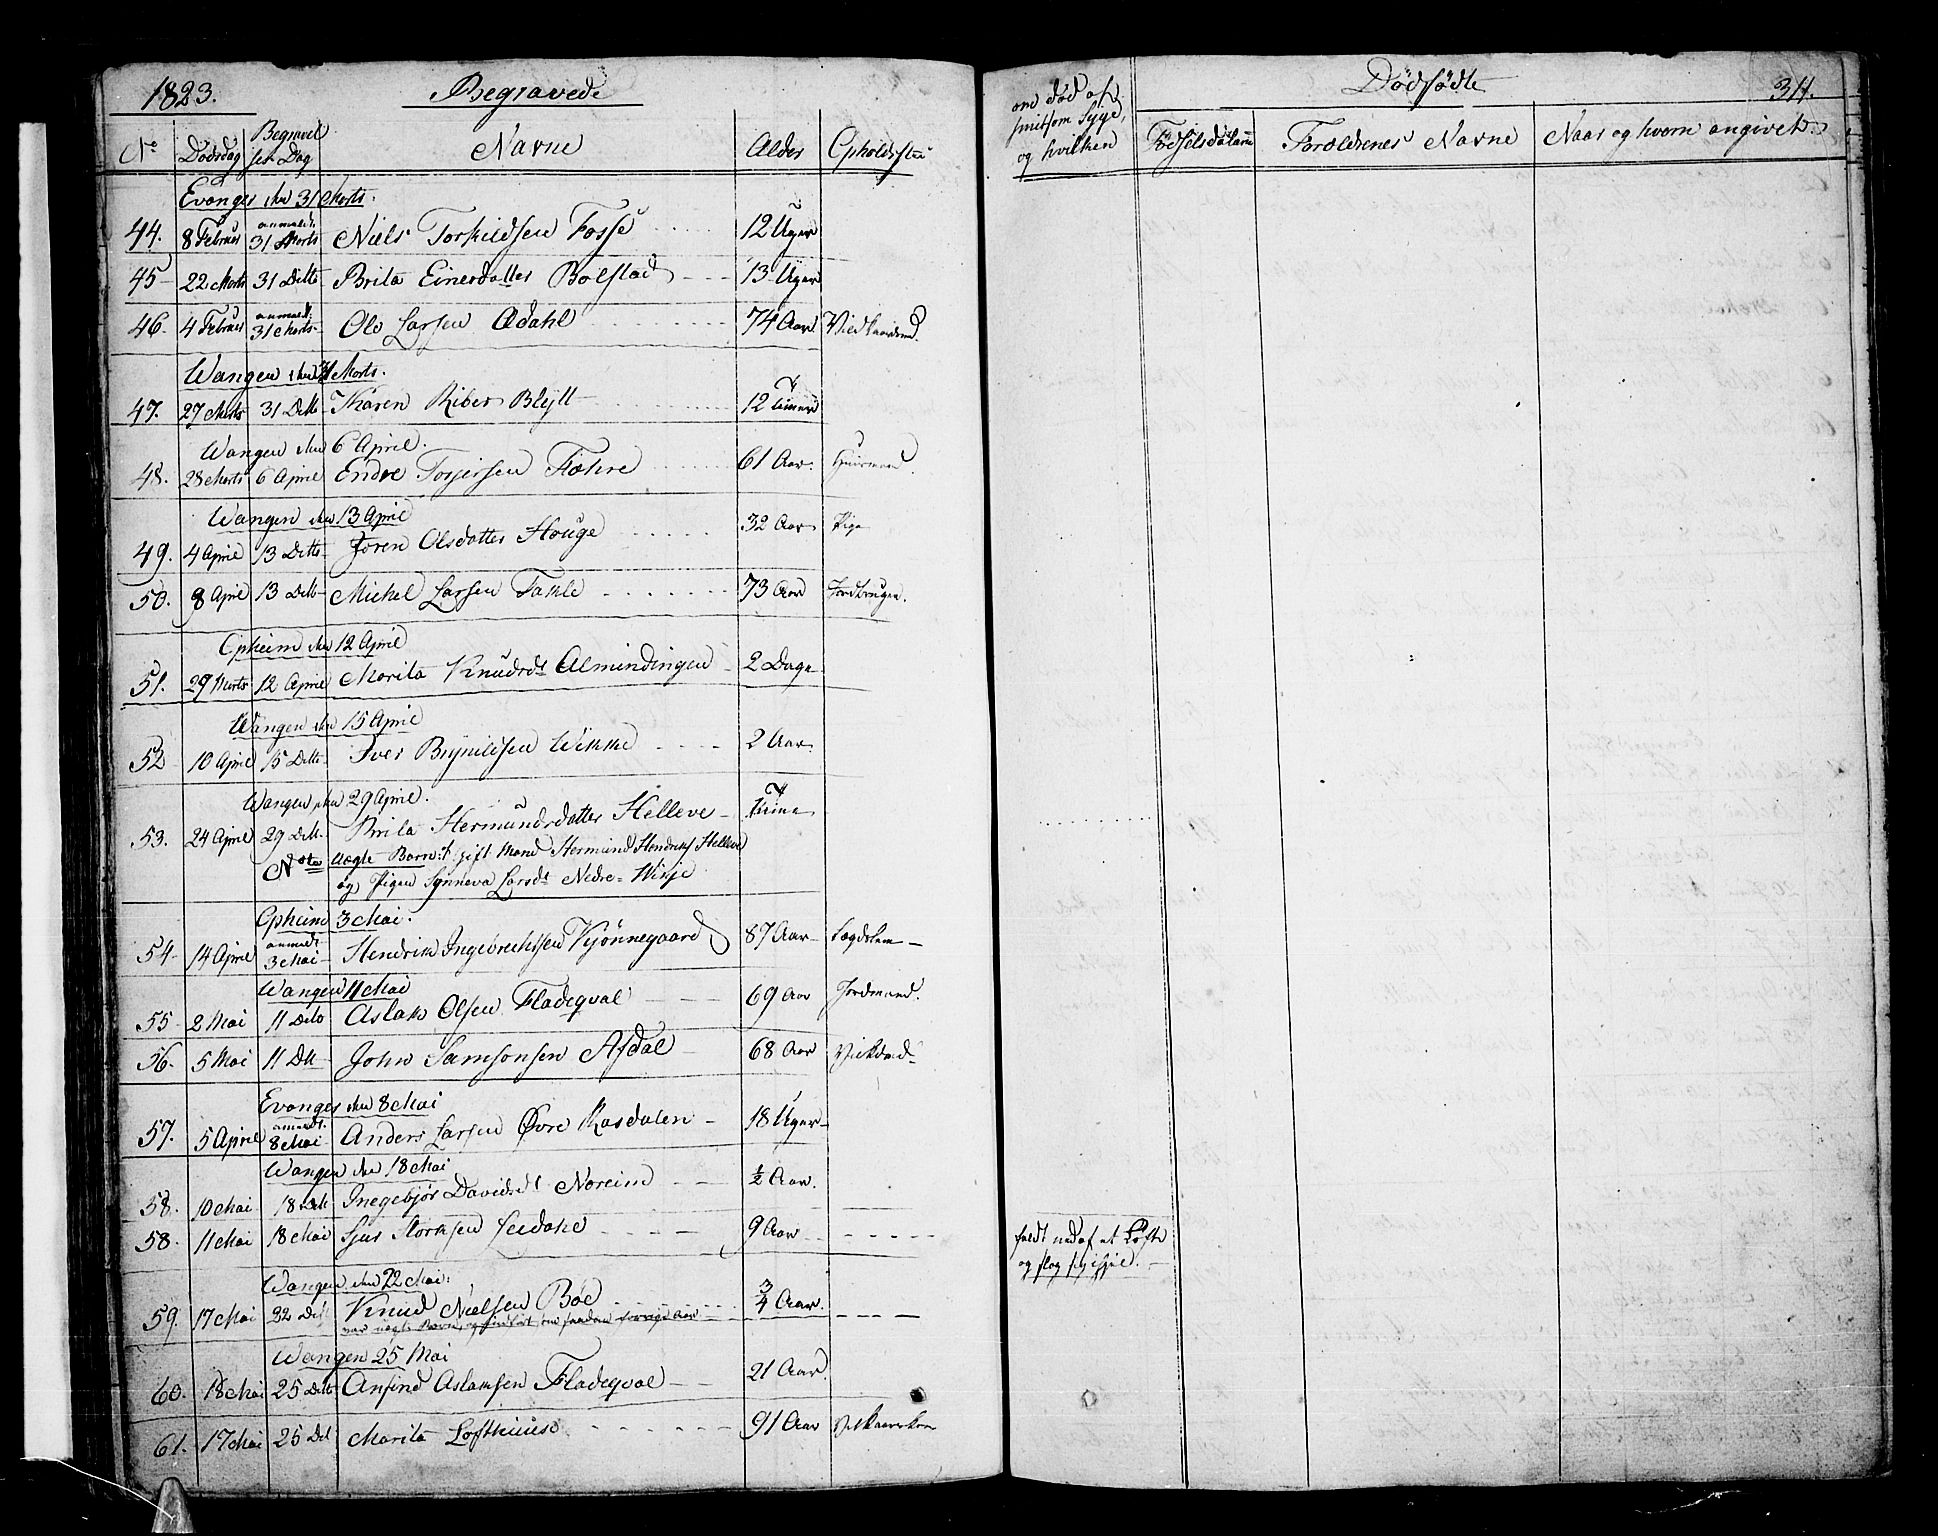 1823.
Begravede
No Dødsdag Begravelses Dag Navne Alder Opholdssted
Evanger den 31 Marts.
44. 8 Februar anmeldt 31 Marts Niels Torkildsen Fosse 12 Uger
45 22 Marts 31 Ditto Brita Einersdatter Bolstad 13 Uger
46. 4 Februar anmeldt 31 Marts Ole Larsen Ødahl 74 Aar
Wangen den 31 Marts.
47. 27 Marts 31 Ditto Karen Riber Blytt 12 Timer
Wangen den 6 April.
48. 28 Marts 6 April Endre Torgersen Fiøhre 61 Aar. Huusmand.
Wangen den 13 April
49. 4 April 13 Ditto Joren Olsdatter Houge 32 Aar Pige
50. 8 April 13 Ditto Michel Larsen Takle 73 Aar Jordbruger.
Opheim den 12 April
51. 29 Marts 12 April Marita Knudsdt Almindingen 2 Dage
Wangen den 15 April
52 10 April 15 Ditto Iver Brynildsen Wikke 2 Aar.
Wangen den 29 April.
53. 24 April 29 Ditt. Brita Hermundsdatter Helleve Time
Nota uægte Barn: f. gift Mand Hermund Hendriks Helleve
og Pigen Synneva Larsdt Nedre-Winje
Opheim 3 Mai.
54. 14 April anmeldt 3 Mai Hendrik Ingebrechtsen Kjønnegaard 87 Aar Lægdslem
Wangen 11 Mai
55 2 Mai 11 Dito Aslak Olsen Fladeqval 69 Aar Jordmand.
56. 5 Mai 11 Ditt John Samsonsen Afdal 68 Aar
Evanger den 8 Mai
57. 5 April anmeldt 8 Mai Anders Larsen Øvre Rasdalen 18 Uger
Wangen den 18 Mai
58. 10 Mai 18 Ditt Ingebjør Davidsdt Noreim ½ Aar.
58. 11 Mai 18 Mai Sjur Storksen Lidahl 9 Aar
Wangen den 22 Mai:
59. 17 Mai 22 Dit Knud Nielsen Bøe ¾ Aar.
var uægte Barn, og indført som saadan forrige Aar
Wangen 25 Mai
60. 18 Mai 25 Ditto Anfind Aslaksen Fladeqval 21 Aar.
61. 17 Mai 25 Dit Marita Lofthuus 91 Aar
om død af smitsom Syge, og hvilken
Dødfødte
34.
Fødselsdatum Forældrenes Navne Naar og hvem angivet
faldt ned af et Lofte
og slog sig ihjel.